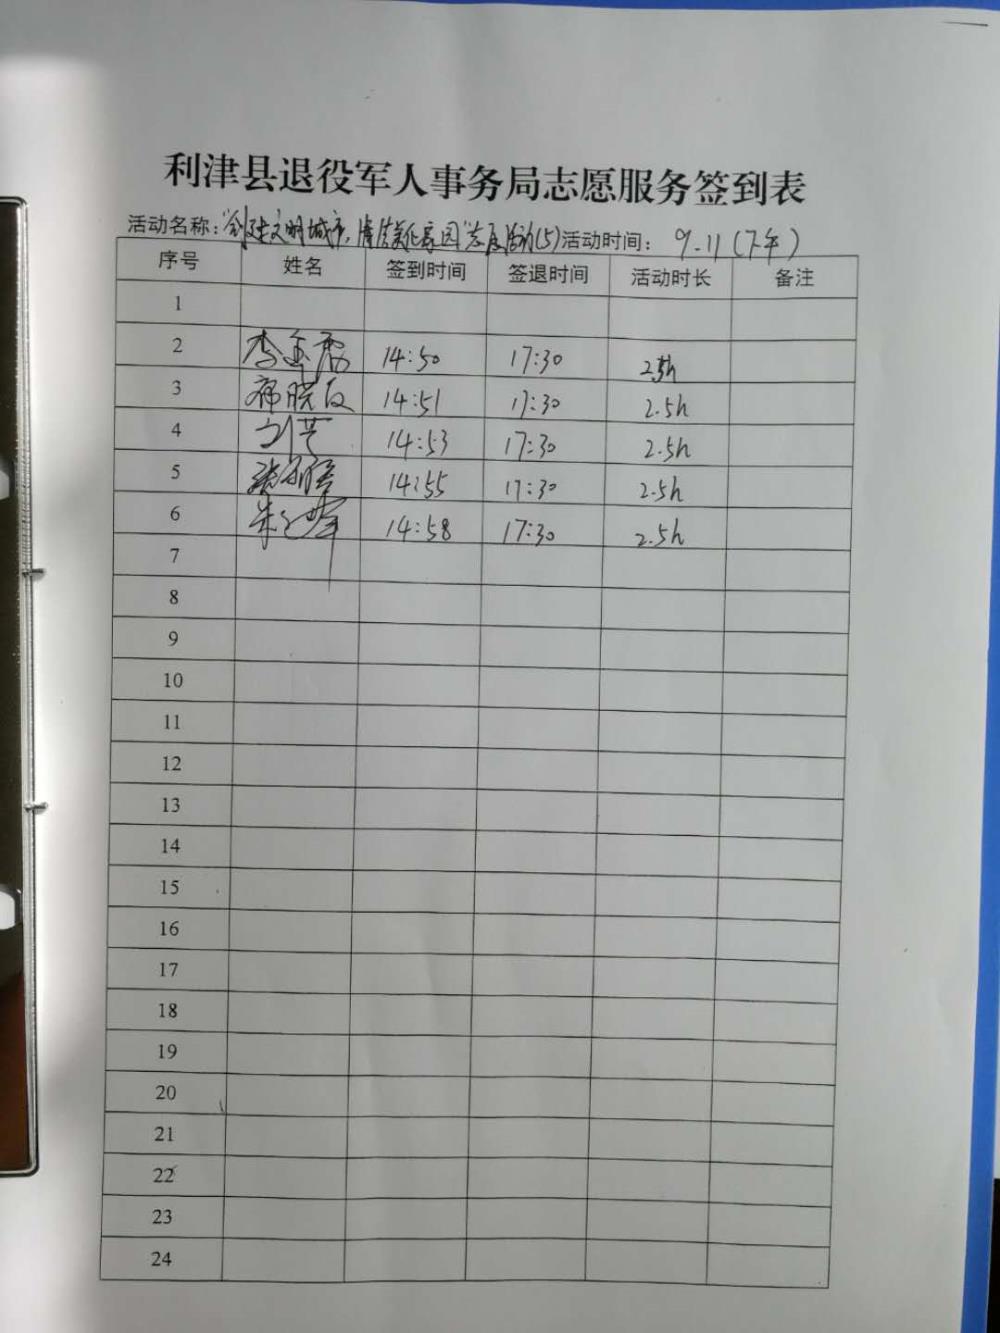 利津县退役军人事务局志愿服务签到表
活动名称："创建文明城市，清洁美化家园"志愿活动(5) 活动时间： 9.11(下午)
序号 姓名 签到时间 签退时间 活动时长 备注
1
2 14:50 17:30 2.5h
3 14:51 17:30 2.5h
4 刘芒 14:53 17:30 2.5h
5 14:55 17:30 2.5h
6 14:58 17:30 2.5h
7
8
9
10
11
12
13
14
15
16
17
18
19
20
21
22
23
24